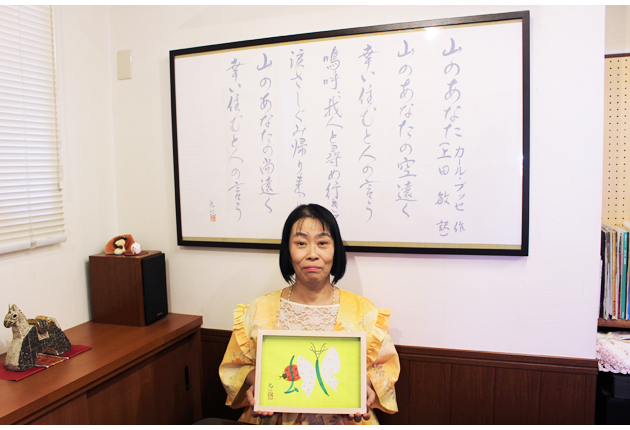 山のあなた カール・ブッセ 作
（上田 敏 訳）
山のあなたの空遠く
幸い住むと人の言う
嗚呼、我人と尋め行きて
涙さしぐみ帰り来ぬ
山のあなたの尚遠く
幸い住むと人の言う